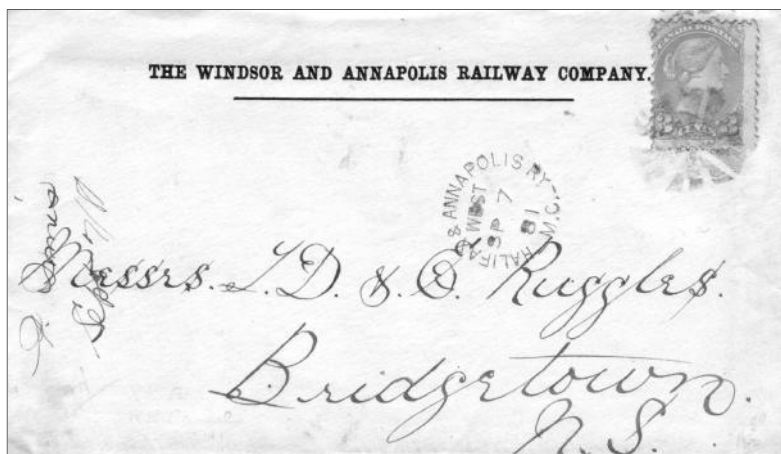 CANADA POSTAGE
THE WINDSOR AND ANNAPOLIS RAILWAY COMPANY.
HALIFAX & ANNAPOLIS RY-M.C.
WEST
SP 7
81
Messrs. T. D. & E. Ruggles.
Bridgetown.
N.S.